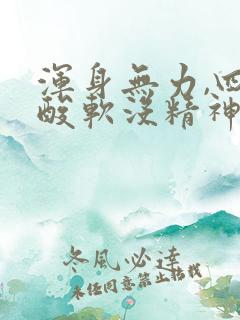 渾身無力,四
酸軟沒精神
冬風必達
未經同意禁止轉載